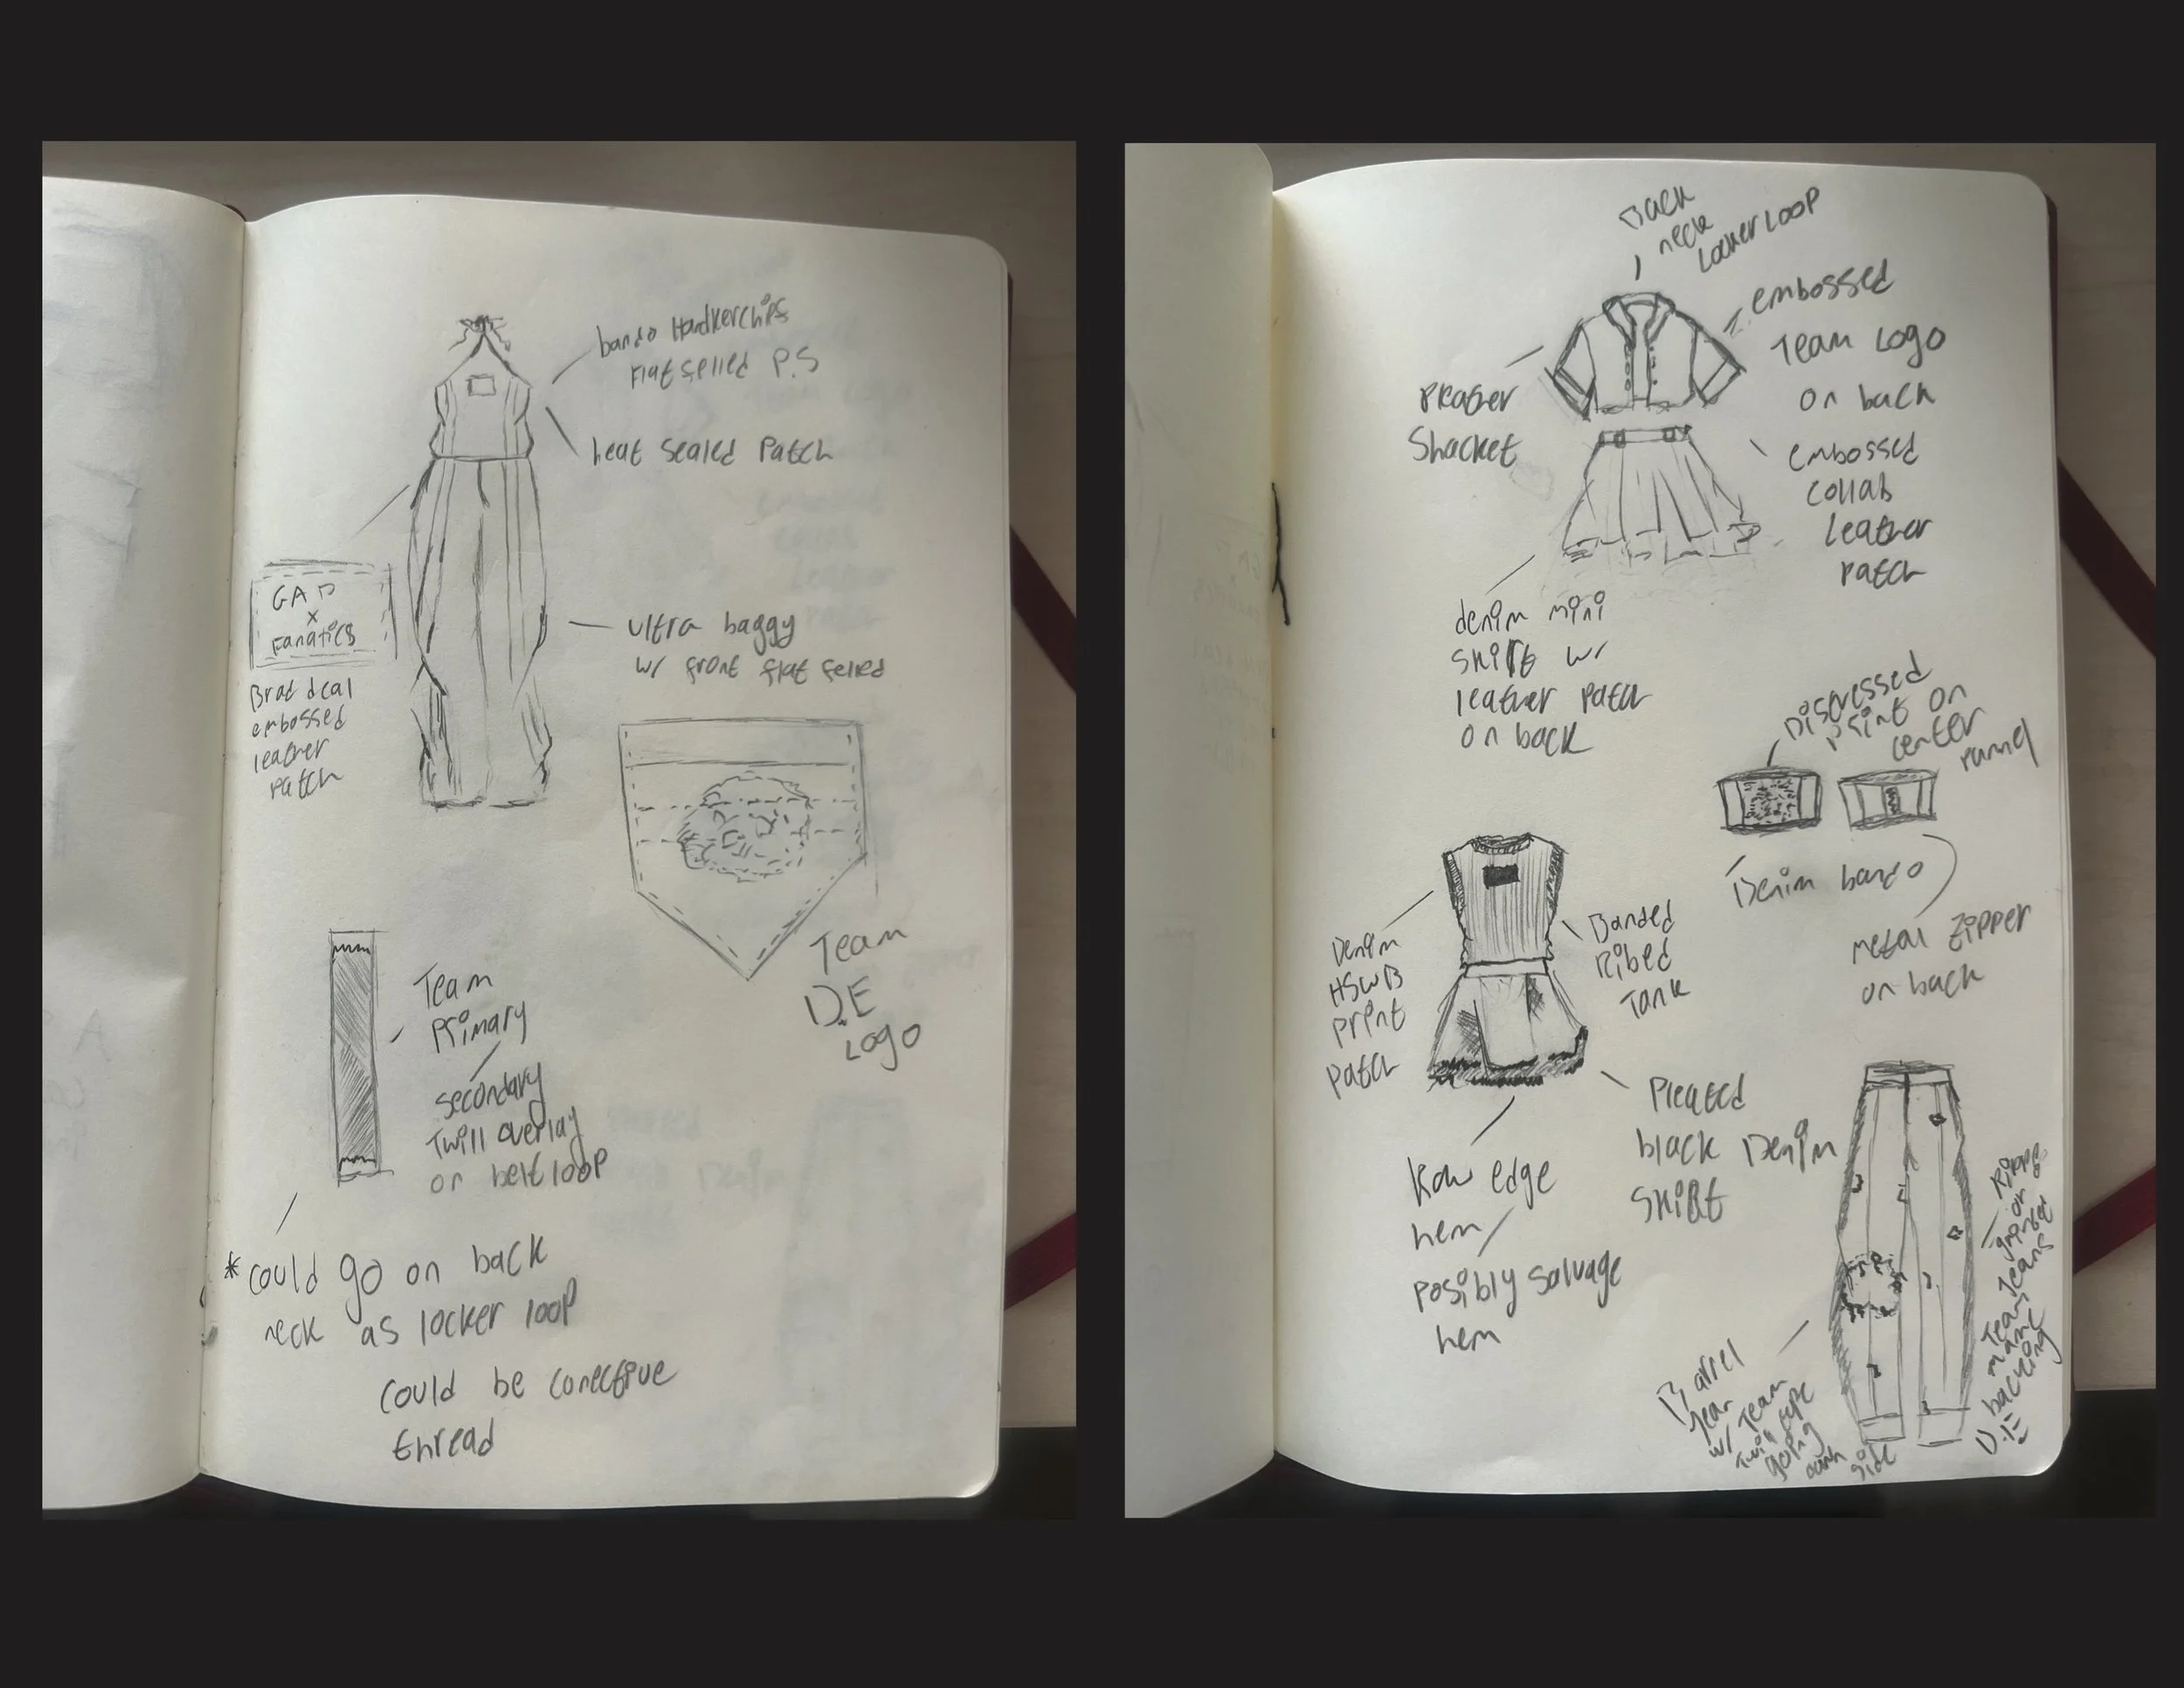 bando Handkerchifs
Flat felled P.S
heat sealed Patch
GAP
x
Fanatics
embossed
leather
patch
ultra baggy
w/ front flat felled
Team
D.E
Logo
Team
Primary
secondary
Twill overlay
on belt loop
*could go on back
neck as locker loop
could be conective
thread
Back
neck
Locker LOOP
embossed
Team Logo
on back
Shacket
embossed
collab
Leather
patch
denim mini
skirt w/
leather patch
on back
Distressed
print on
center
pannel
Denim bando
metal zipper
on back
Denim
HSWB
print
patch
Banded
Ribed
Tank
Raw edge
hem/
Posibly Salvage
hem
Pleated
black Denim
Skirt
Barrel
Jean
w/ Team
Twill tape
going
down side
Team
name
backing
D.E